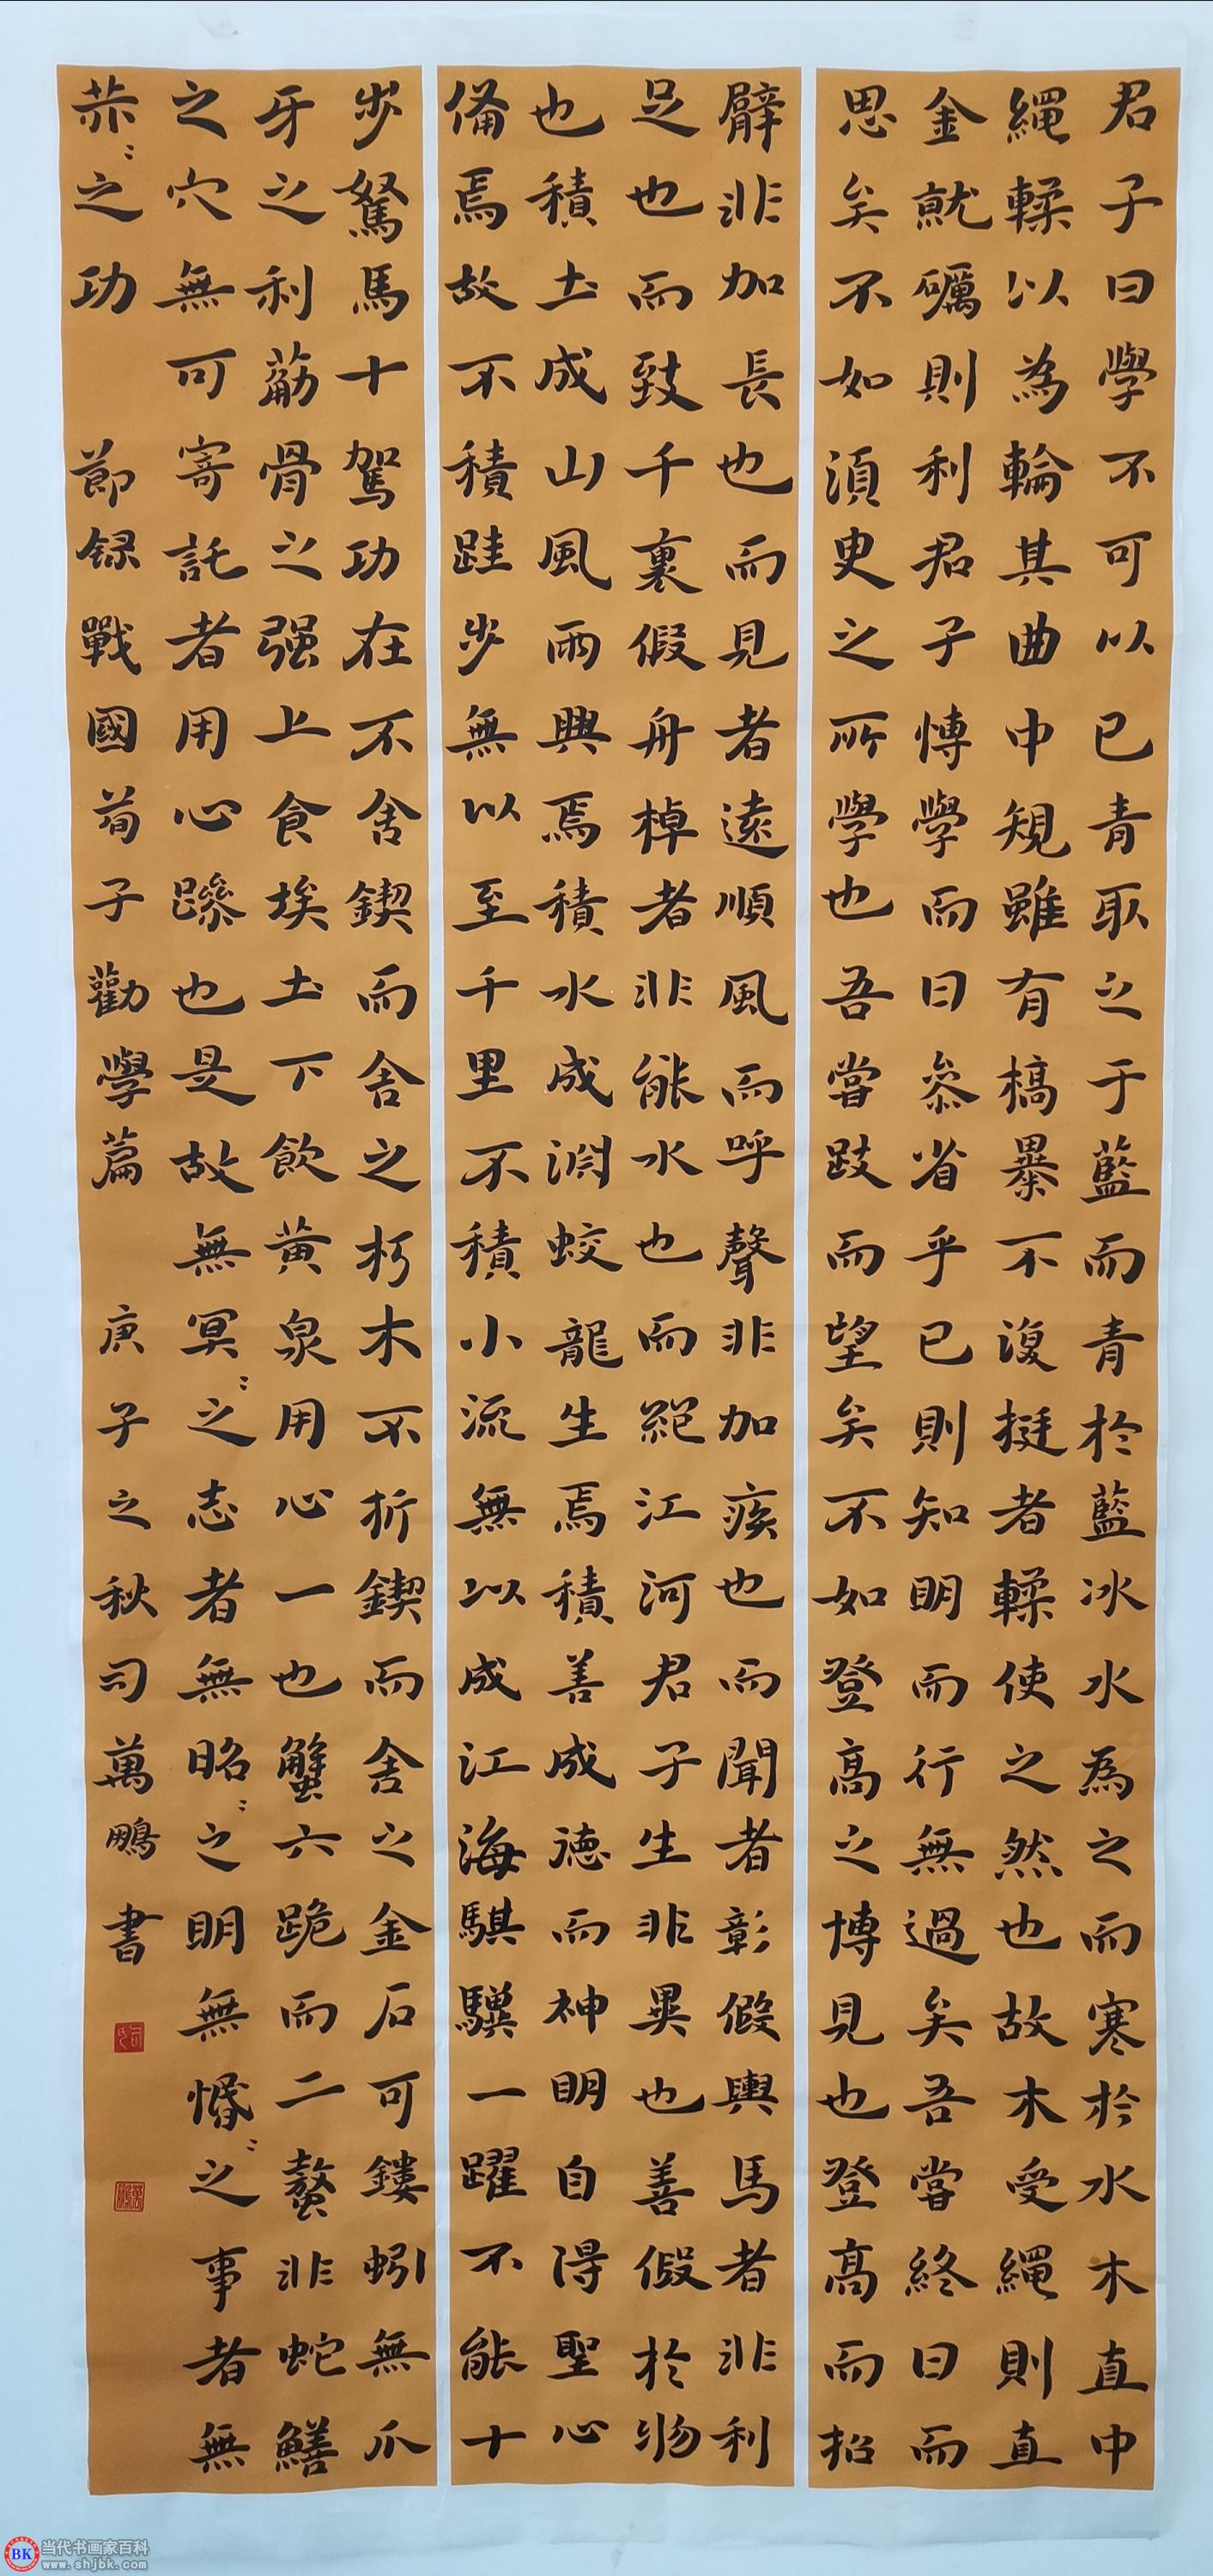 君子曰學不可以已青取之于藍而青於藍冰水為之而寒於水木直中
繩輮以為輪其曲中規雖有槁暴不復挺者輮使之然也故木受繩則直
金就礪則利君子博學而日參省乎己則知明而行無過矣吾嘗終日而
思矣不如須臾之所學也吾嘗跂而望矣不如登高之博見也登高而招
臂非加長也而見者遠順風而呼聲非加疾也而聞者彰假輿馬者非利
足也而致千裏假舟棹者非能水也而絕江河君子生非異也善假於物
也積土成山風雨興焉積水成淵蛟龍生焉積善成德而神明自得聖心
備焉故不積跬步無以至千里不積小流無以成江海騏驥一躍不能十
步駑馬十駕功在不舍鍥而舍之朽木不折鍥而舍之金石可鏤蚓無爪
牙之利筋骨之强上食埃土下飲黃泉用心一也蟹六跪而二螯非蛇鱔
之穴無可寄託者用心躁也是故無冥〻之志者無昭〻之明無惛〻之事者無
赫〻之功 節録戰國荀子勸學篇 庚子之秋司萬鵬書
BK 当代书画家百科
www.shjbk.com